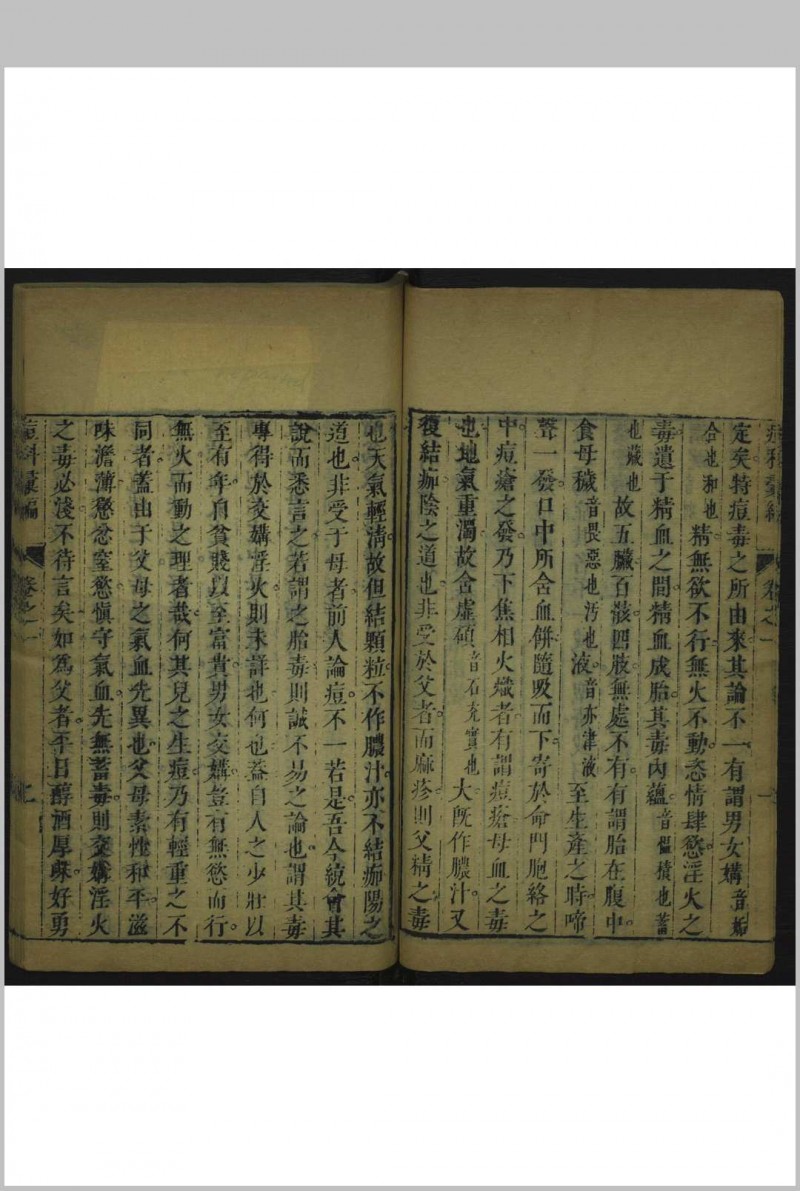 定矣特痘毒之所由來其論不一有謂男女媾音姤
合也和也精無欲不行無火不動恣情肆慾淫火之
毒遺于精血之間精血成胎其毒內蘊音慍積也蓄
也藏也故五臟百骸四肢無處不有有謂胎在腹中
食母穢音畏惡也汚也液音亦津液至生產之時啼
聲一發口中所含血餅隨吸而下寄於命門胞絡之
中痘瘡之發乃下焦相火熾者有謂痘瘡母血之毒
也地氣重濁故含虛碩音石充實也大既作膿汁又
復結痂陰之道也非受於父者而麻疹則父精之毒
也天氣輕清故但結顆粒不作膿汁亦不結痂陽之
道也非受于母者前人論痘不一若是吾今統會其
說而悉言之若謂之胎毒則誠不易之論也謂其毒
專得於交媾淫火則未詳也何也蓋自人之少壯以
至有年自貧賤以至富貴男女交媾豈有無慾而行
無火而動之理者哉何其兒之生痘乃有輕重之不
同者蓋由于父母之氣血先異也父母素性和平滋
味澹薄懲忿窒慾慎守氣血先無蓄毒則交媾淫火
之毒必淺不待言矣如為父者平日醇酒厚味好勇
痘科彙編 卷之一